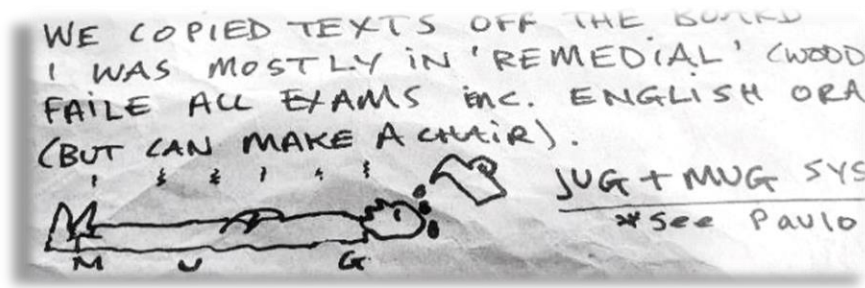 WE COPIED TEXTS OFF THE BOARD
I WAS MOSTLY IN 'REMEDIAL' (WOOD
FAILE ALL EXAMS inc. ENGLISH ORA
(BUT CAN MAKE A CHAIR).
JUG + MUG SYS
*See Paulo
M U G